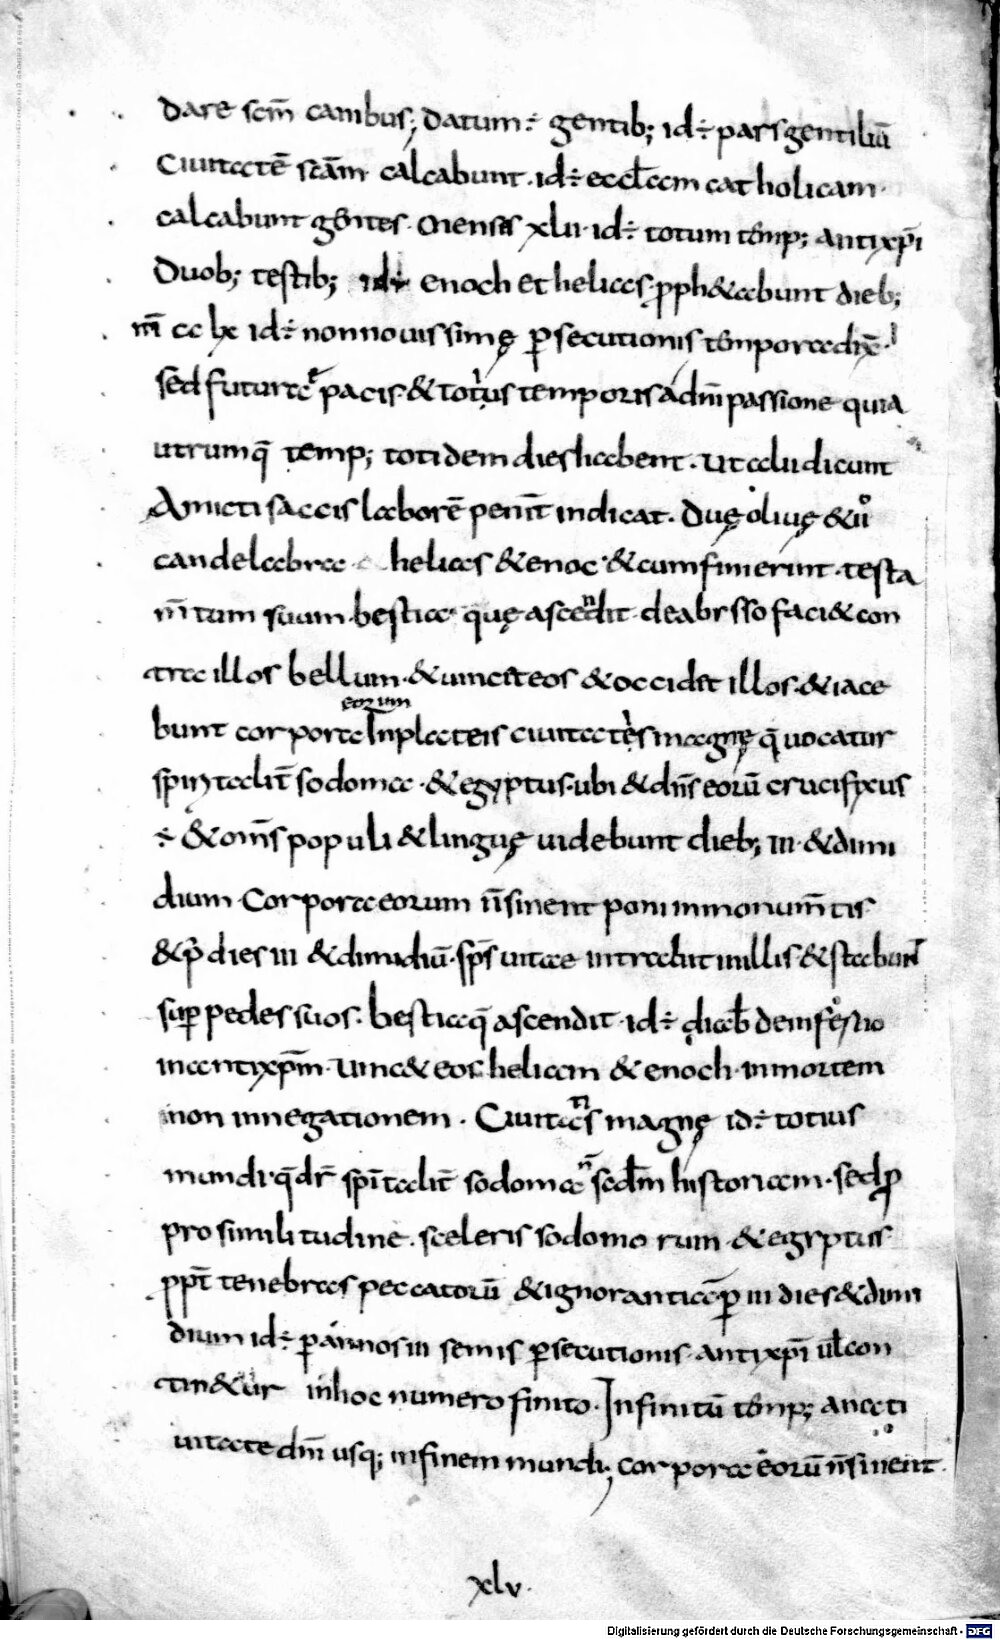 dare scm̄ canibus; datum ÷ gentib; id ÷ pars gentiliū
Ciuitatē scām calcabunt · id ÷ eccl̄am catholicam ·
calcabunt gentes · Menses xlii · id ÷ totum temp; antixp̄i
Duob; testib; id ÷ enoch et helias · pph&abunt dieb;
m̄ cc lx id ÷ non nouissimę p̱secutionis tempora dix̄ ·
sed futurae pacis · & totius temporis a dn̄i passione quia
utrumq̄ temp; totidem dies habent · ut alii dicunt
Amicti saccis laborē penit̄ indicat · Duę oliuę & ii
candelabra · helias & enoc · & cum finierint · testa
m̄tum suum · bestia quę ascendit de abysso faci& con
tra illos bellum · & uincit eos & occidet illos · & iace
bunt corpora eorum In plateis ciuitatis magnę q̄ uocatur
spiritalit̄ sodoma · & egyptus · ubi & dn̄s eorū crucifixus
÷ & om̄s populi & linguę uidebunt dieb; iii · & dimi
dium · Corpora eorum n̄ sinent poni in monum̄tis ·
& p̱ dies iii & dimidiū · sp̄s uitae intrabit in illis · & stabunt
sup̱ pedes suos · bestia q̄ ascendit · id ÷ diab̄
in antixp̄m · Vinc& eos heliam & enoch · in mortem
non in negationem · Ciuitatis magnę id ÷ totius
mundi · q̄ dr̄ spi̅talit̄ sodoma n̄ secd̄m historiam · sed p̱
pro similitudine · sceleris sodomorum · & egyptus
ppt̄ tenebras peccatorū & ignorantiae p̱ iii dies & dimi
dium id ÷ p̱ annos iii semis p̱secutionis · antixp̄i ul̄ con
tin&ur in hoc numero finito · Infinitū temp; a nati
uitate dn̄i usq; in finem mundi; corpora eorū n̄ sinent ·
xlv ·
Digitalisierung gefördert durch die Deutsche Forschungsgemeinschaft - DFG